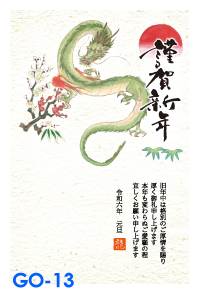 謹賀新年
旧年中は格別のご厚情を賜り
厚く御礼申し上げます
本年も変わらぬご愛顧の程
宜しくお願い申し上げます
令和六年 元旦
GO-13